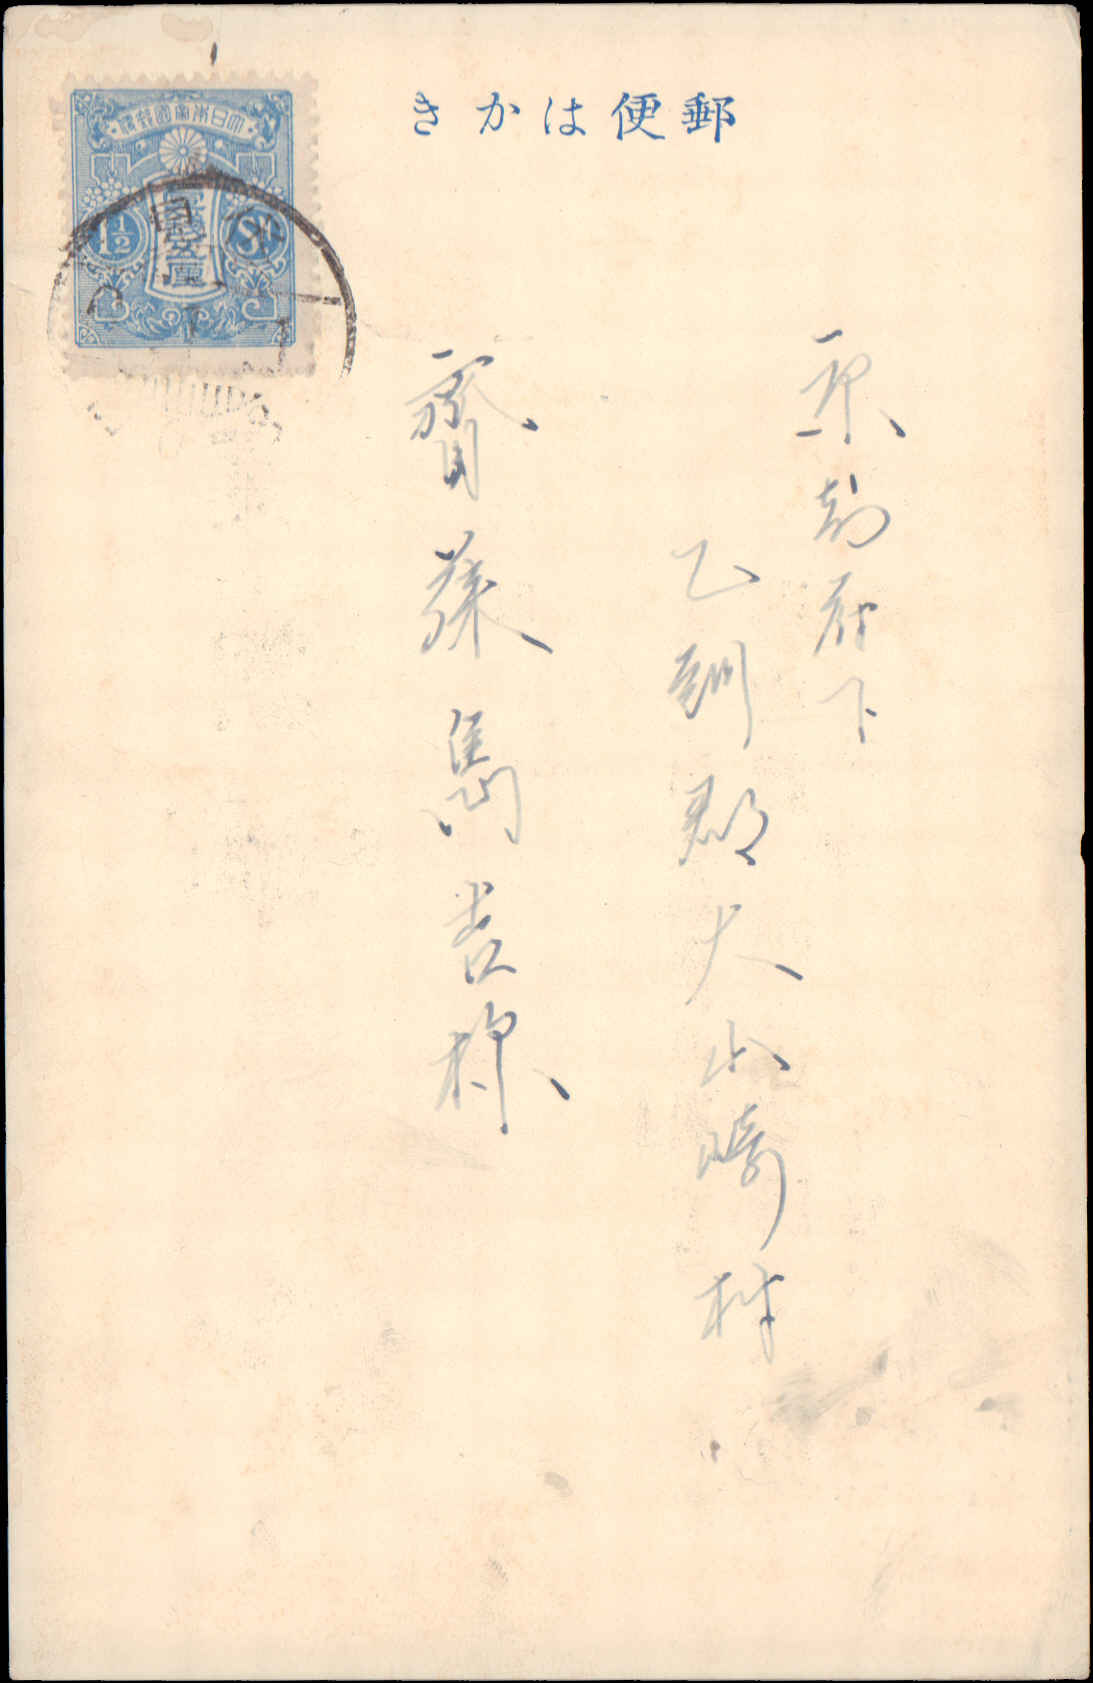 郵便はかき
大日本帝國郵便
壹銭五厘
1½
Sn
京都府下
乙訓郡大山崎村
齋藤嶌吉様